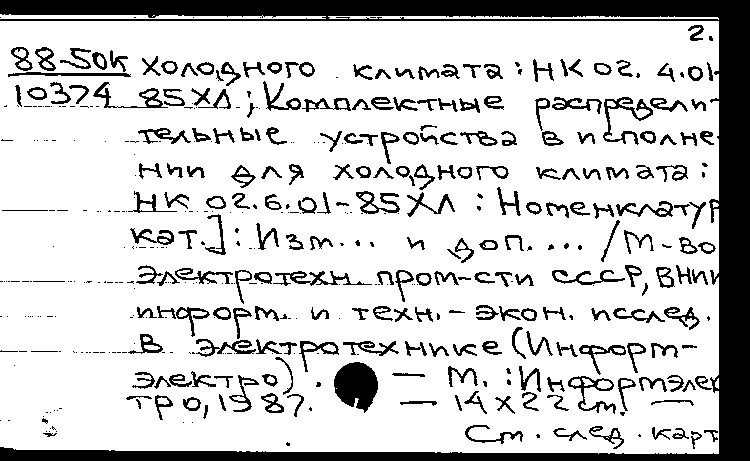 2.
88-50к холодного климата : НК 02. 4.01-
10374 85ХЛ ; Комплектные распредели-
тельные устройства в исполне
нии для холодного климата :
НК 02.6.01-85ХЛ : Номенклатур
кат.] : Изм... и доп. ... / М-во
электротехн. пром-сти СССР, ВНИИ
информ. и техн.- экон. исслед.
в электротехнике (Информ-
электро) . — М. : Информэлек
тро, 1987. — 14 х 22 cm. —
См. след. карт